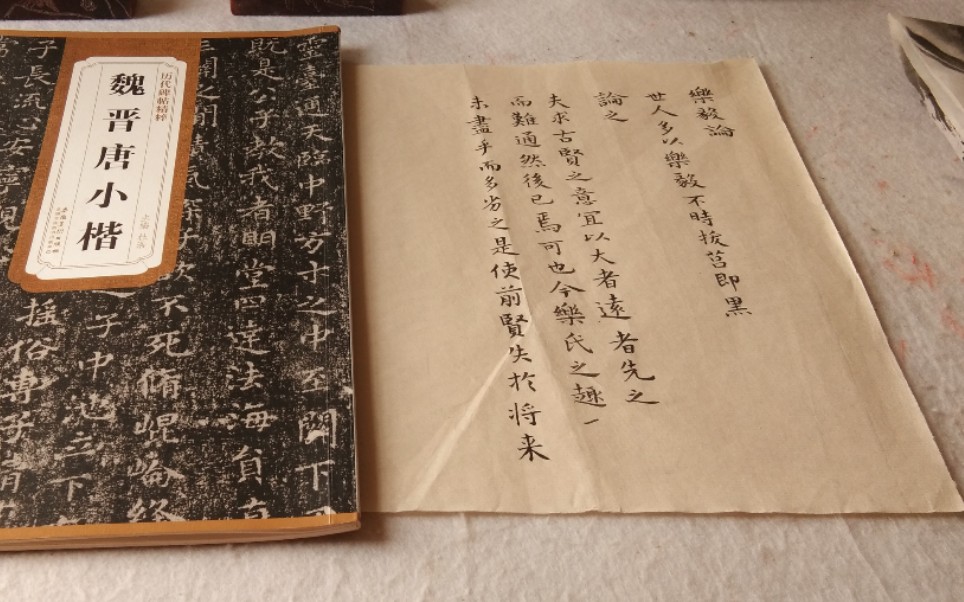 历代碑帖精粹
魏晋唐小楷
靈臺通天臨中野方寸之中至關下
既是公子教我者明堂四達法海員
三關之間精氣深子欲不死脩崐崘絳
子長流心安寧
之子中池三下
樂毅論
世人多以樂毅不時拔莒即黑
論之
夫求古賢之意宜以大者遠者先之
而難通然後已焉可也今樂氏之趣一
未盡乎而多劣之是使前賢失於将来